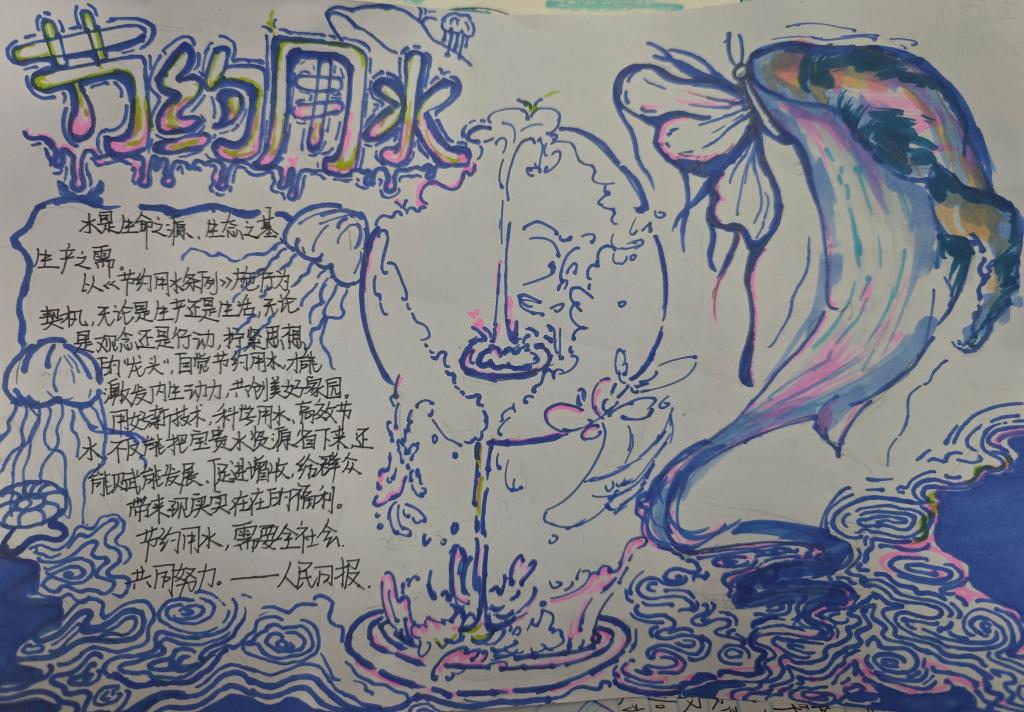 节约用水
水是生命之源、生态之基
生产之需。
以《节约用水条例》施行为
契机，无论是生产还是生活，无论
是观念还是行动，拧紧思想
的“龙头”，自觉节约用水，才能
激发内生动力，共创美好家园。
用好新技术，科学用水、高效节
水，不仅能把宝贵水资源省下来，还
能赋能发展、促进增收，给群众
带来现实实在在的福利。
节约用水，需要全社会
共同努力。——人民日报